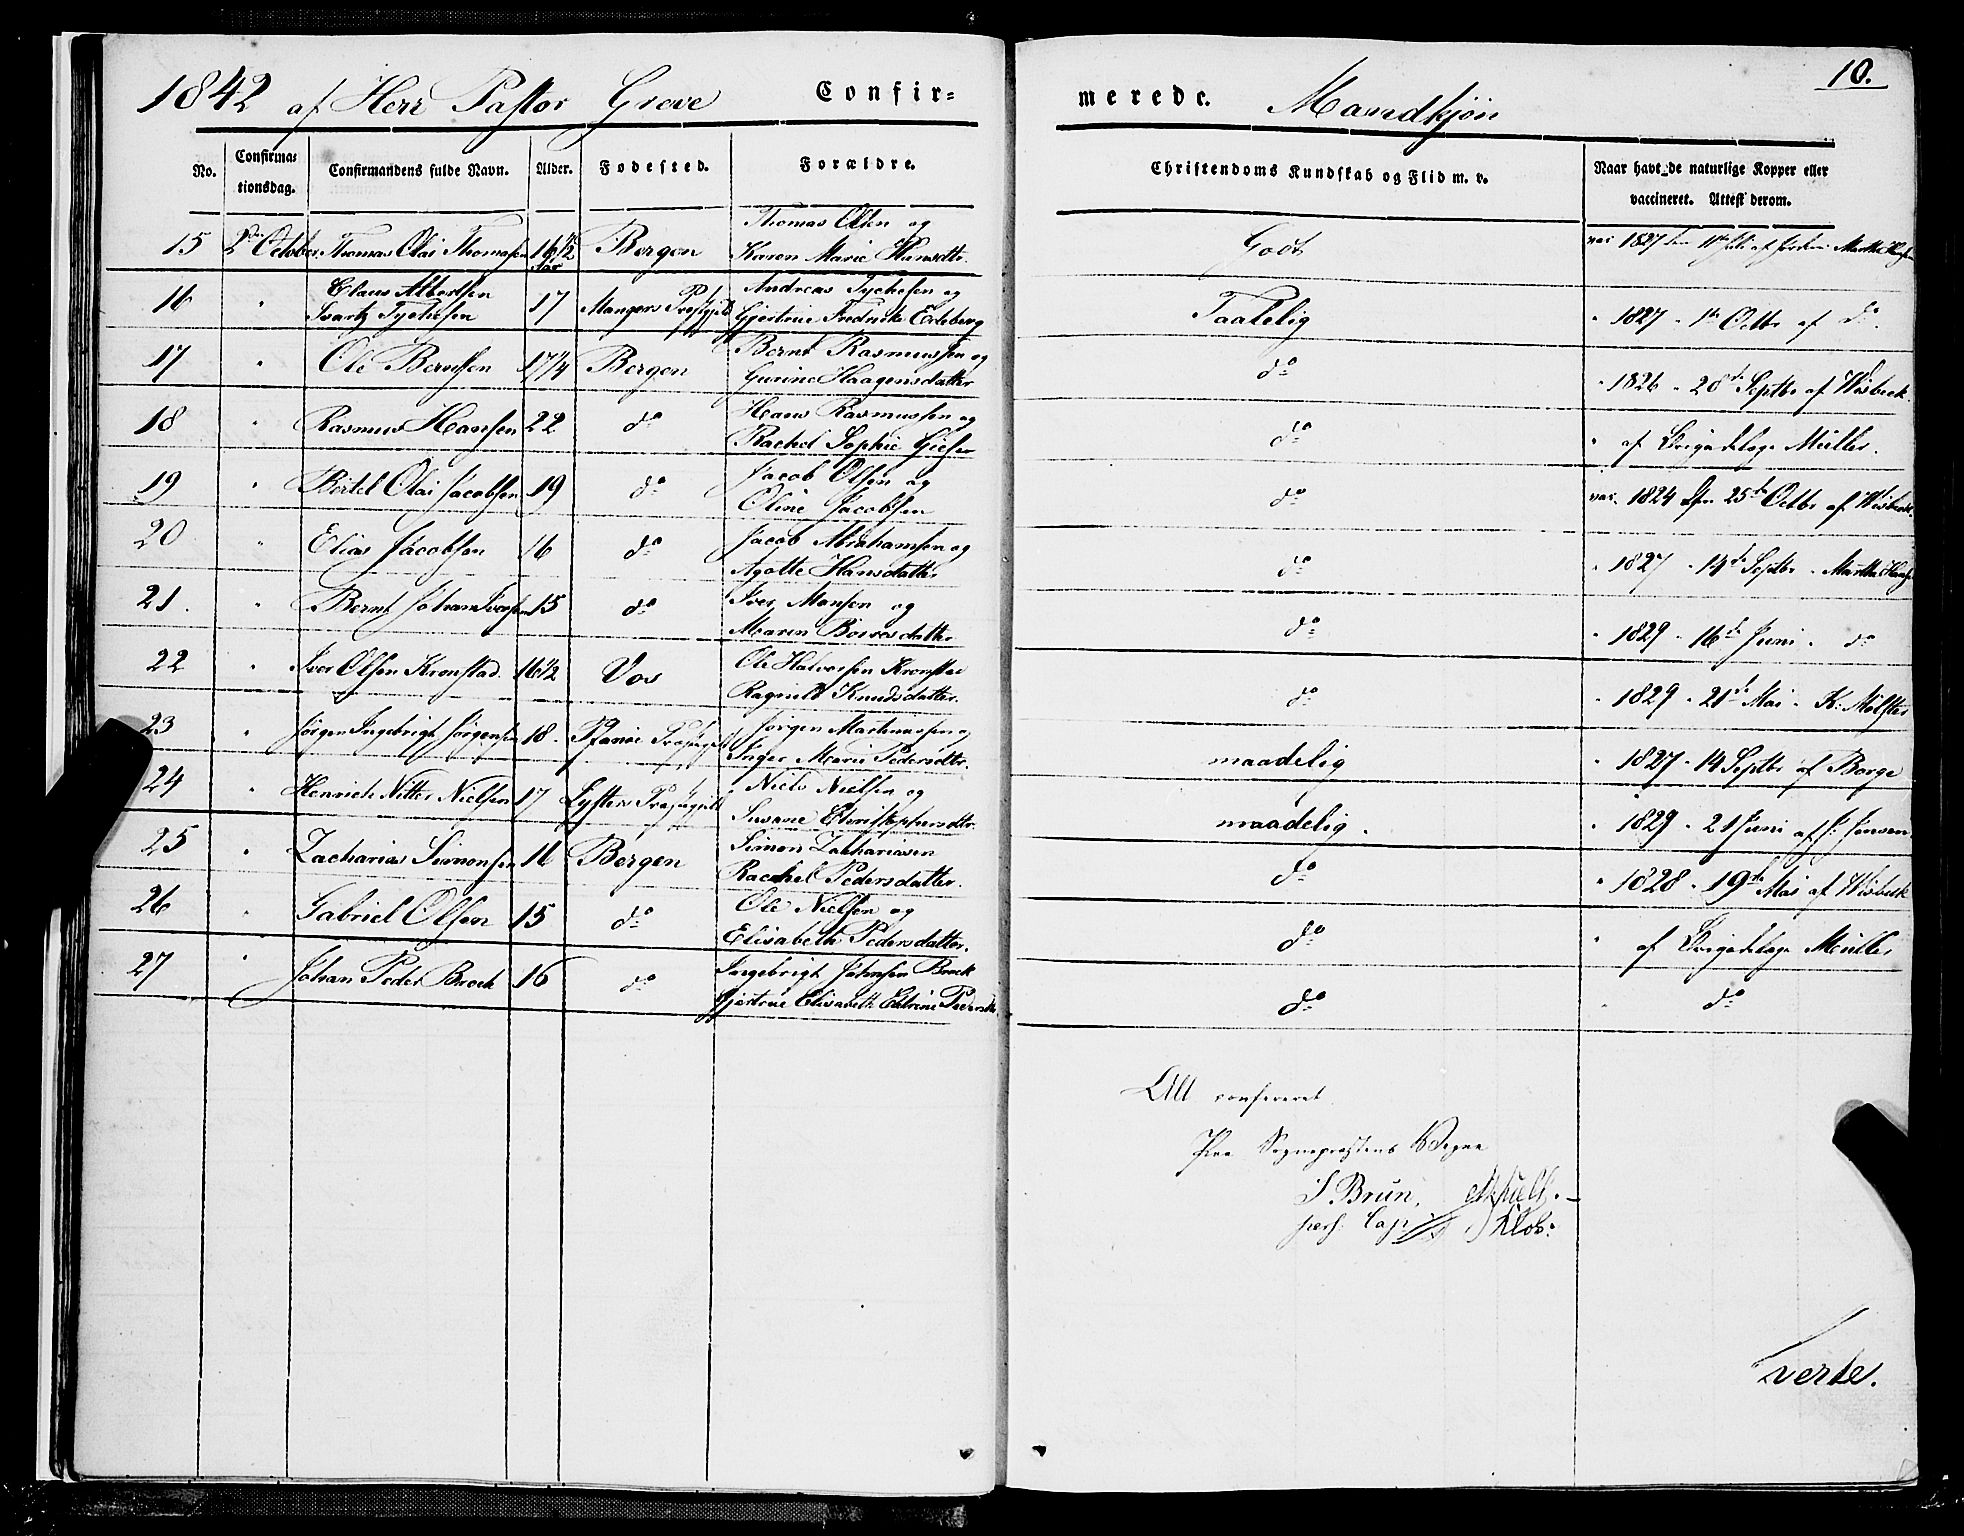 1842 af Herr Pastor Greve Confir= merede. Mandkjøn 10.
No. Confirma= tionsdag. Confirmandens fulde Navn. Alder. Fødested. Forældre. Christendoms Kundskab og Flid m. v. Naar havt de naturlige Kopper eller vaccineret. Attest derom.
15 2den October Thomas Olai Thomassen 16 1/2 Aar Bergen Thomas Olsen og Karen Marie Hansdtr. Godt vac 1827 den af Martha
16 " Claus Albertsen Svartz Tychesen 17 Mangers Præstgjeld Andreas Tychesen og Gjertrue Fredrikke Erleberg Taalelig " 1827 " 1te Octbr af do.
17 " Ole Berntsen 17 1/4 Bergen Bernt Rasmussen og Gurine Haagensdatter do " 1826 " 28de Septbr af Wisbeck
18 " Rasmus Hansen 22 do Hans Rasmussen og Rachel Sophie do " af Brigadelæge Müller.
19 " Bertel Olai Jacobsen 19 do Jacob Olsen og Oline Jacobsen do vac. 1824 den 25de Octbr af Wisbeck
20 " Elias Jacobsen 16 do Jacob Abrahamsen og Agotte Hansdatter do " 1827 " 14de Septbr " Martha
21. " Bernt Johan Iversen 15 do Iver Monsen og Maren do " 1829 " 16de Juni " do
22 " Iver Olsen Kronstad. 16 1/2 Vos Ole Halvorsen Kronstad Ragnild Knudsdatter. do " 1829 " 21de Mai " K: Mølster
23 " Jørgen Ingebrigt Jørgensen 18 Præstegjeld Jørgen Martinussen og Inger Marie Pedersdtr. maadelig " 1827 " 14 Septbr af Borge
24 " Henrich Nitter Nielsen 17 Lysters Præstegjeld Niels Nielsen og Susane Christophersdtr. maadelig. " 1829 " 21 Juni af J: Jensen
25 " Zacharias Simonsen 16 Bergen Simon Zachariasen Rachel Pedersdatter. do " 1828 " 19de Mai af Wisbeck
26 " Gabriel Olsen 15 do Ole Nielsen og Elisabeth Pedersdatter. do " af Brigadelæge Müller
27 " Johan Peder Brock 16 do Ingebrigt Johnsen Brock Gjertrue Elisabeth Catrine Pedersdtr. do " do
Alt confereret
Paa Sognepræstens Vegne
J. Brun,
pers: Cap: Klok:
verte.